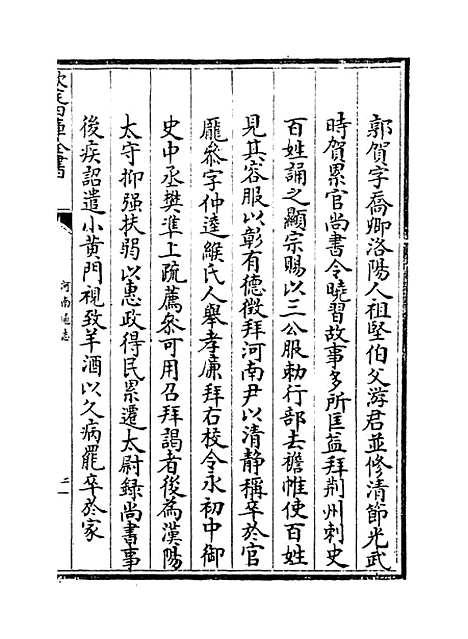 郭賀字喬卿洛陽人祖堅伯父游君並修清節光武
時賀累官尚書令曉習故事多所匡益拜荆州刺史
百姓誦之顯宗賜以三公服勅行部去襜帷使百姓
見其容服以彰有德徵拜河南尹以清静稱卒於官
龐叅字仲逵緱氏人舉孝廉拜右校令永初中御
史中丞樊準上疏薦叅可用召拜謁者後為漢陽
太守抑强扶弱以惠政得民累遷太尉録尚書事
後疾詔遣小黄門視致羊酒以久病罷卒於家
欽定四庫全書
河南通志